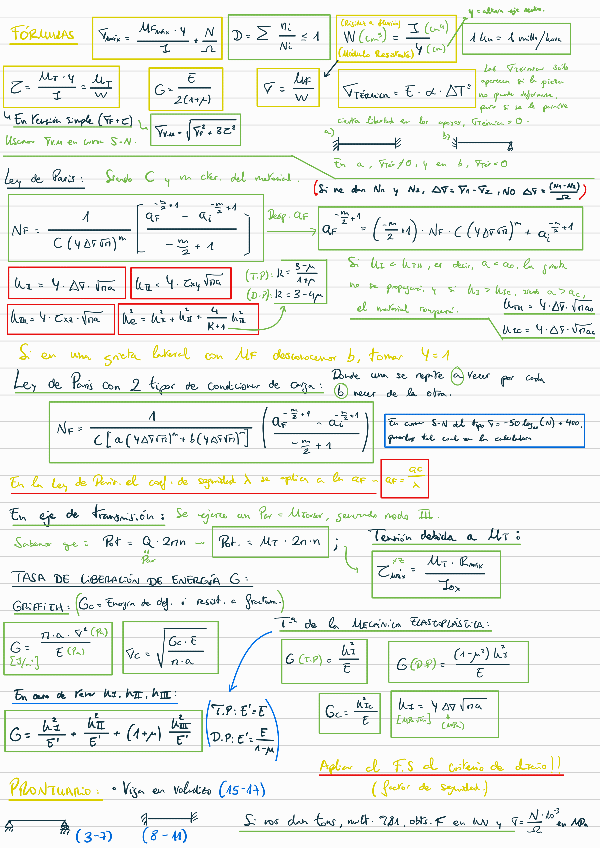 FÓRMULAS
σ_máx = M_Fmáx · y / I + N/Ω
D = Σ ni/Ni ≤ 1
W (cm³) = I (cm⁴) / y (cm)
(Módulo Resistente)
1 kn = 1 milla/hora
τ = M_T · y / I = M_T / W
G = E / 2(1+μ)
σ = M_F / W
σ_TÉRMICA = E · α · ΔTª
Las σ_TÉRMICAS solo
aparecen si la pieza
no puede deformarse,
pero si se le permite
cierta libertad en los apoyos, σ_TÉRMICA = 0.
↳ En torsión simple (σ_F + τ)
σ_V.M = √(σ_F² + 3τ²)
Usamos σ_V.M en curva S-N.
a)
b)
En a, σ_TÉR ≠ 0, y en b, σ_TÉR = 0
Ley de Paris: Siendo C y m ctes. del material.
(Si me dan N1 y N2, Δσ = σ1 - σ2, NO Δσ = (N1-N2)/Ω)
N_F = 1 / C (Y Δσ √π)^m [ (a_F^(-m/2+1) - a_i^(-m/2+1)) / (-m/2 + 1) ]
Desp. a_F
a_F^(-m/2+1) = (-m/2 + 1) · N_F · C (Y Δσ √π)^m + a_i^(-m/2+1)
K_I = Y · Δσ √πa
K_III = Y · τxy √πa
(T.P): K = 3-μ / 1+μ
(D.P): K = 3-4μ
K_III = Y · τxz · √πa
K_e² = K_I² + K_II² + 4/(K+1) K_III²
Si K_I < K_TH, es decir, a < a0, la grieta
no se propagará, y si K_I > K_IC, siendo a > a_c,
el material romperá.
K_TH = Y · Δσ · √πa0
K_IC = Y · Δσ · √πac
Si en una grieta lateral con M_F desconocemos b, tomar Y = 1
Ley de Paris con 2 tipos de condiciones de carga:
Donde una se repite a veces por cada
b veces de la otra.
N_F = 1 / C [a (Y Δσ √π)^m + b (Y Δσ √π)^m] ( (a_F^(-m/2+1) - a_i^(-m/2+1)) / (-m/2 + 1) )
En curva S-N del tipo σ = -50 log10 (N) + 400,
ponerlos tal cual en la calculadora
En la Ley de Paris, el coef. de seguridad λ se aplica a la a_F → a_F = a_c / λ
En eje de transmisión: Se ejerce un Par = M_Torsor, generando modo III.
Sabemos que: Pot = Q · 2πn → Pot. = M_T · 2π · n ;
Par
Tensión debida a M_T:
τ_máx^xz = M_T · R_máx / I_ox
TASA DE LIBERACIÓN DE ENERGÍA G:
GRIFFITH: (Gc = Energía de def. o resist. a fractura)
G = π · a · σ² (Pa) / E (Pa)
[J/m²]
σ_c = √(Gc · E / π · a)
Tª de la MECÁNICA ELASTOPLÁSTICA:
G (T.P) = K_I² / E
G (D.P) = (1-μ²) K_I² / E
En caso de tener K_I, K_II, K_III:
G = K_I²/E' + K_II²/E' + (1+μ) K_III²/E'
(T.P: E' = E
D.P: E' = E / 1-μ)
Gc = K_IC² / E
K_I = Y Δσ √πa
[MPa√m] (MPa)
Aplicar el F.S al criterio de diseño!!
(factor de seguridad)
PRONTUARIO: • Viga en voladizo (15-17)
(3-7)
(8-11)
Si nos dan tons, mult. 9'81, obts. F en kN y σ = N · 10⁻³ / Ω en MPa